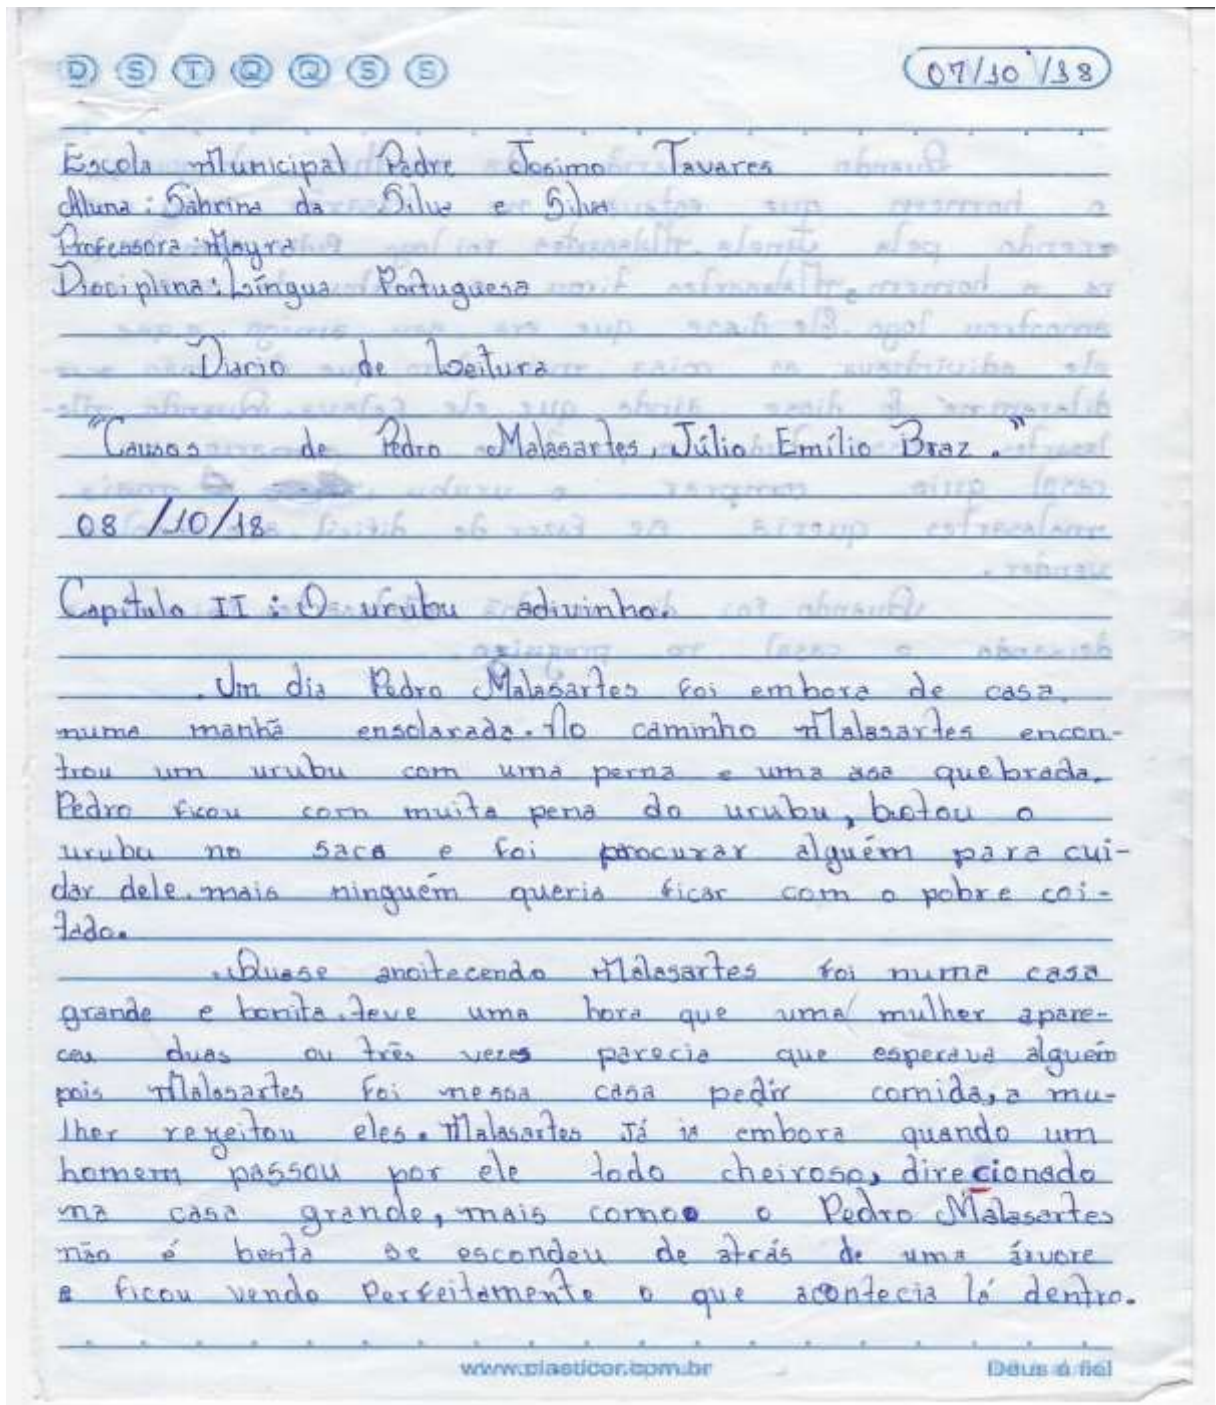 D S T Q Q S S
07/10/18
Escola Municipal Padre Josimo Tavares
Aluna: Sabrina da Silva e Silva
Professora: Mayra
Disciplina: Língua Portuguesa
Diario de Leitura
"Causos de Pedro Malasartes, Júlio Emílio Braz."
08/10/18
Capítulo II: O urubu adivinho.
Um dia Pedro Malasartes foi embora de casa
numa manhã ensolarada. No caminho Malasartes encon-
trou um urubu com uma perna e uma asa quebrada.
Pedro ficou com muita pena do urubu, botou o
urubu no saco e foi procurar alguém para cui-
dar dele. mais ninguém queria ficar com o pobre coi-
tado.
Quase anoitecendo Malasartes foi numa casa
grande e bonita. teve uma hora que uma mulher apare-
ceu duas ou três vezes parecia que esperava alguém
pois Malasartes foi nessa casa pedir comida, a mu-
lher rejeitou eles. Malasartes Já ia embora quando um
homem passou por ele todo cheiroso, direcionado
na casa grande, mais como o Pedro Malasartes
não é besta se escondeu de atrás de uma árvore
e ficou vendo Perfeitamente o que acontecia lá dentro.
www.plasticor.com.br
Deus é fiel